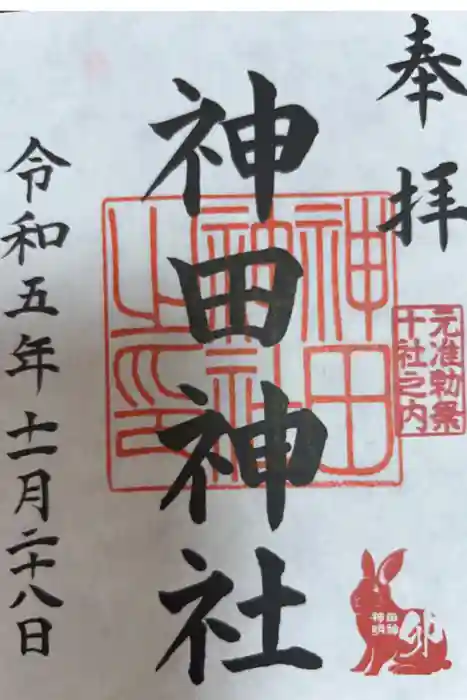 奉拝
元准勅祭
十社之内
神田神社
神田
神社
之印
卯
令和五年十一月二十八日